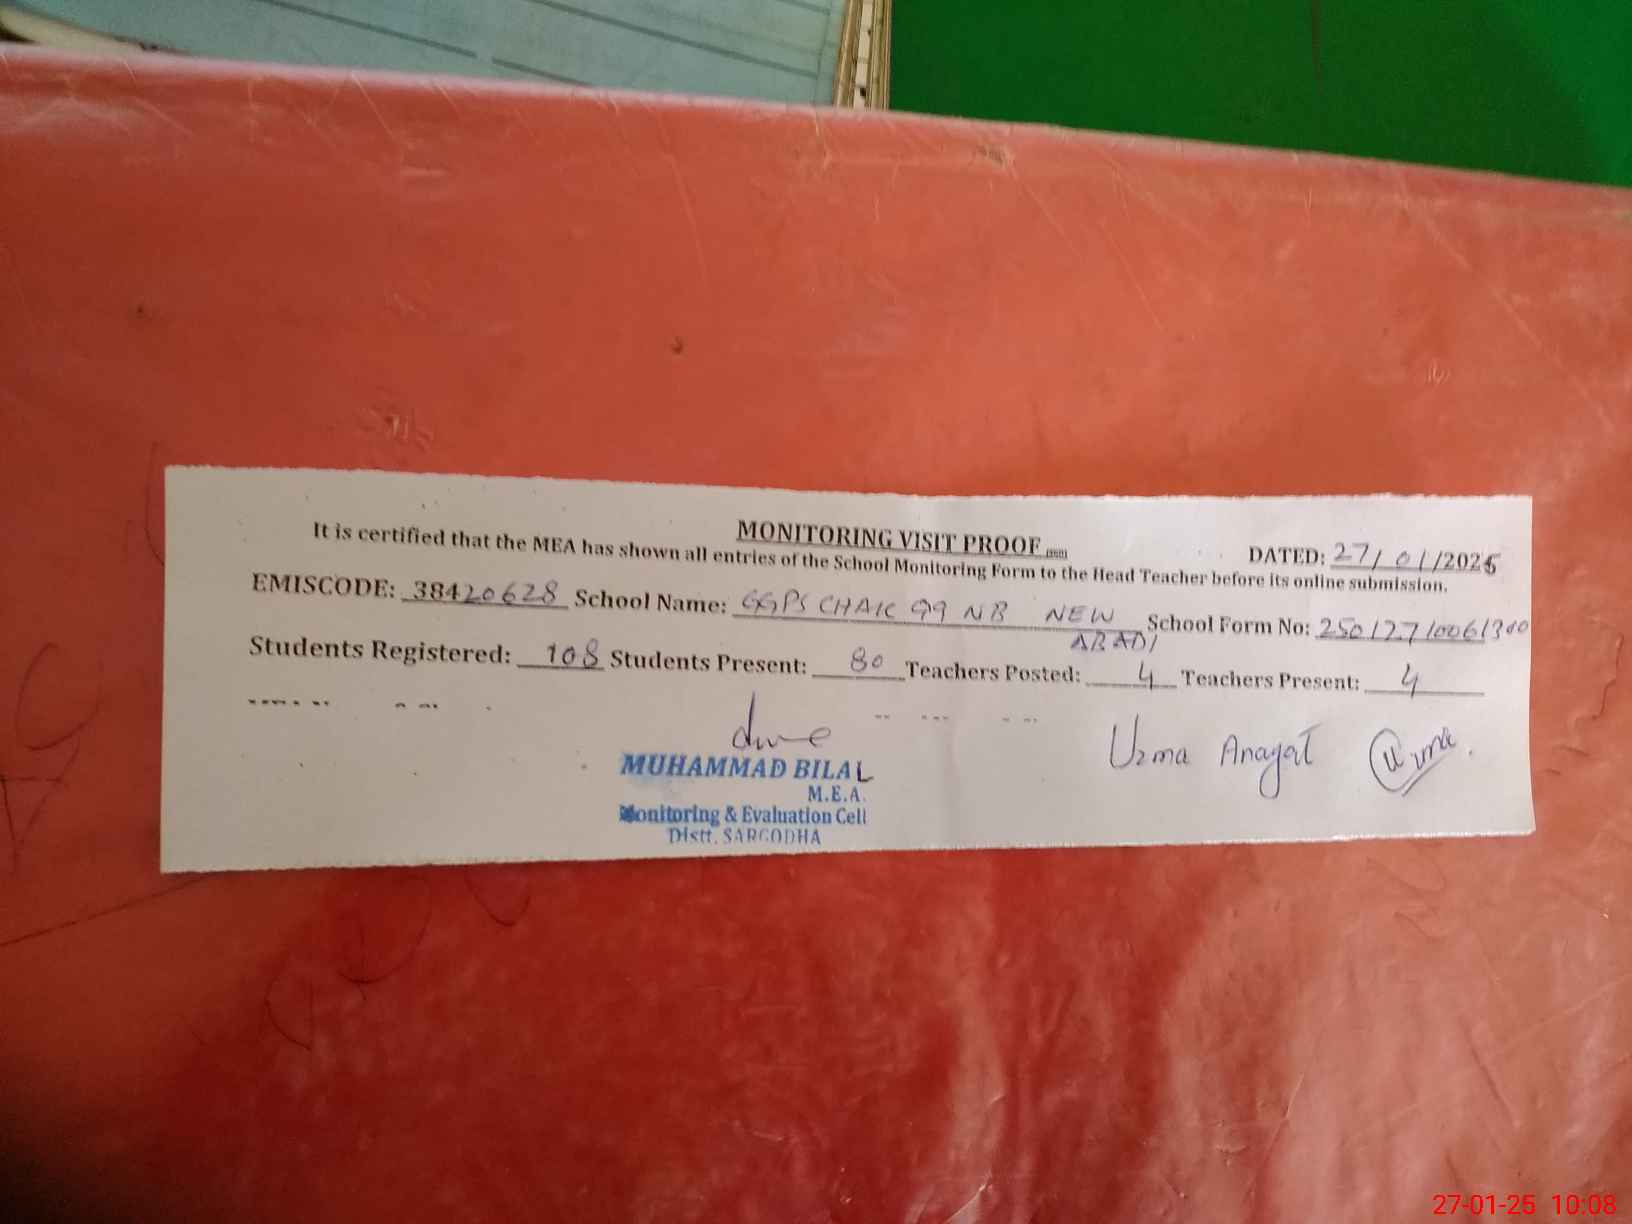 MONITORING VISIT PROOF
DATED: 27/01/2025
It is certified that the MEA has shown all entries of the School Monitoring Form to the Head Teacher before its online submission.
EMISCODE: 38420628 School Name: GGPS CHAK 99 NB NEW ABADI School Form No: 25012710061300
Students Registered: 108 Students Present: 80 Teachers Posted: 4 Teachers Present: 4
MUHAMMAD BILAL
M.E.A.
Monitoring & Evaluation Cell
Distt. SARGODHA
Uzma Anayat Uzma.
27-01-25 10:08